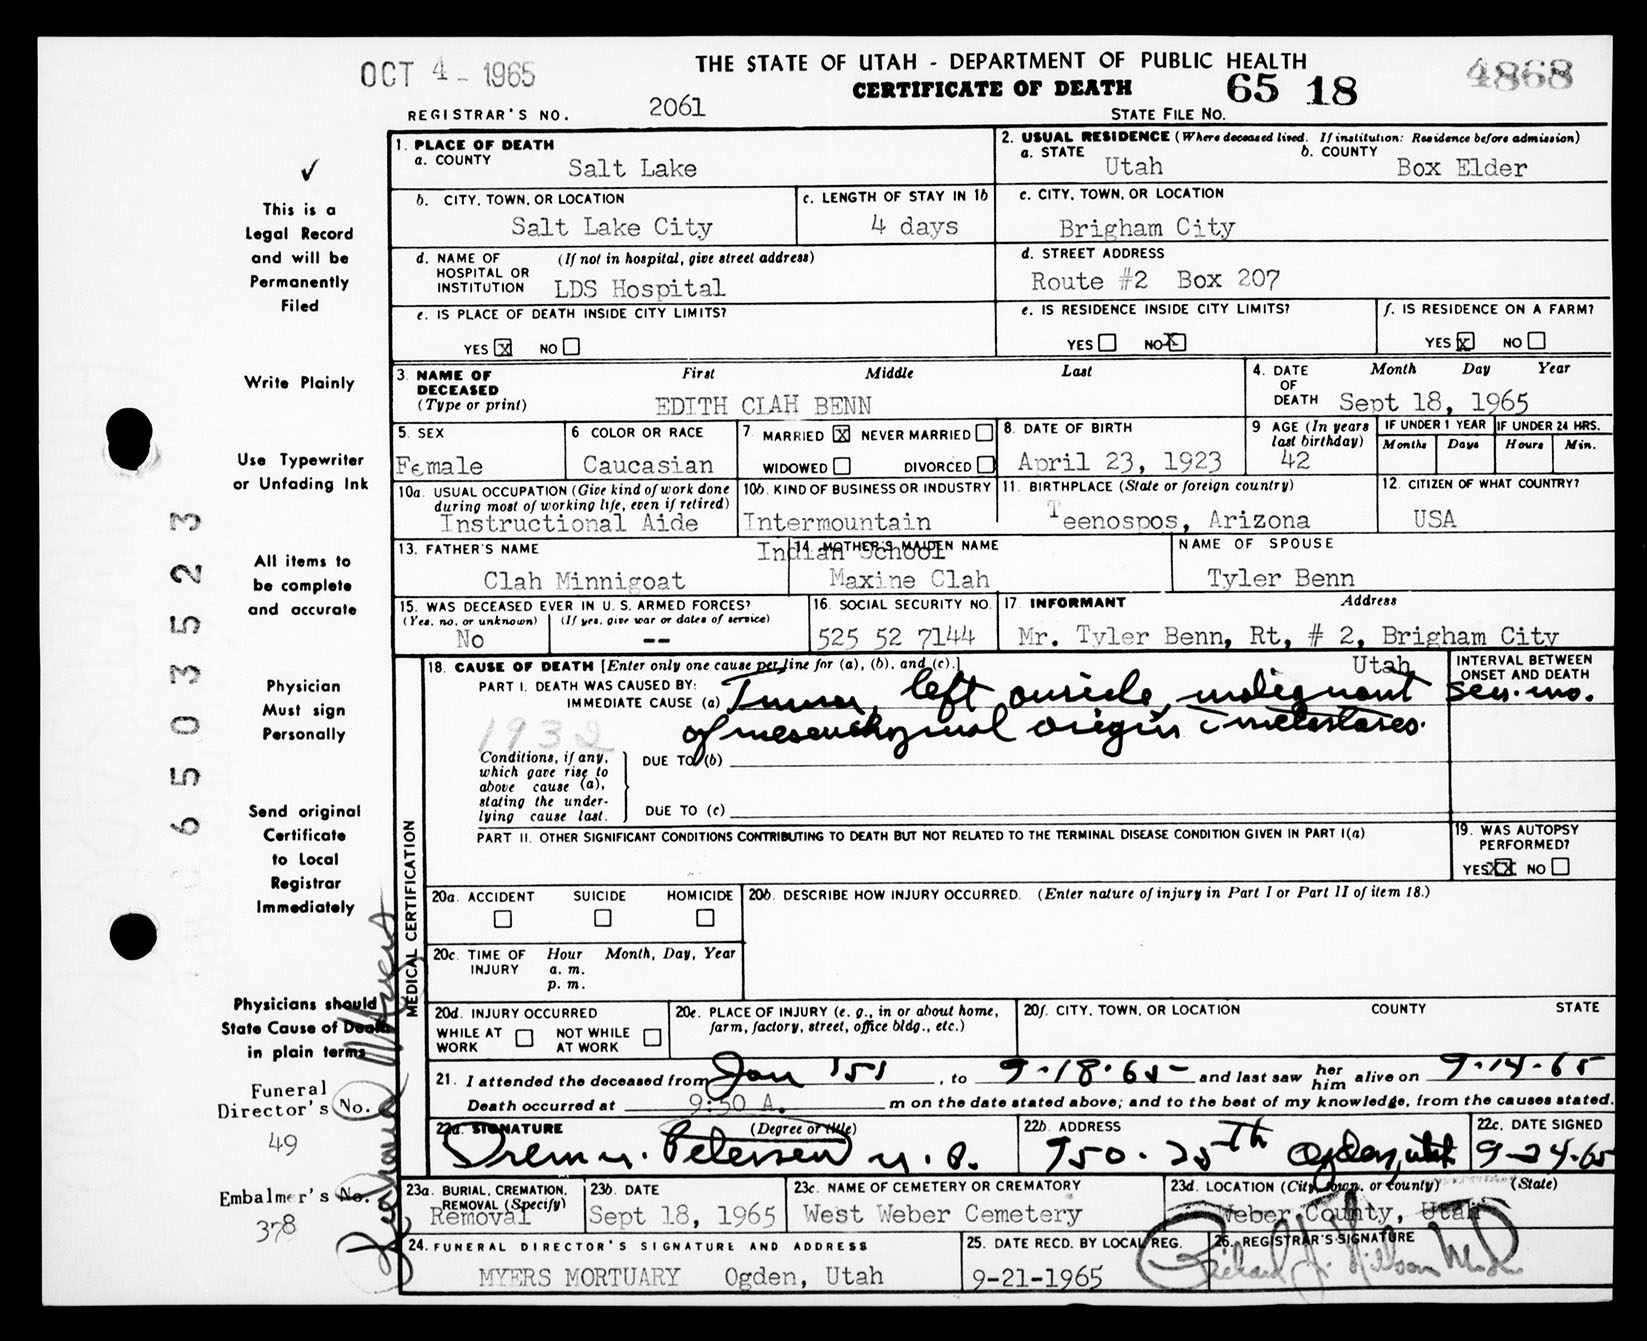 THE STATE OF UTAH - DEPARTMENT OF PUBLIC HEALTH
OCT 4 - 1965
CERTIFICATE OF DEATH
65 18
4868
REGISTRAR'S NO. 2061
STATE FILE NO.
✓
This is a
Legal Record
and will be
Permanently
Filed
Write Plainly
Use Typewriter
or Unfading Ink
All items to
be complete
and accurate
Physician
Must sign
Personally
Send original
Certificate
to Local
Registrar
Immediately
Physicians should
State Cause of Death
in plain terms
Funeral
Director's No.
49
Embalmer's No.
378
65035523
Richard Myers
1. PLACE OF DEATH
a. COUNTY Salt Lake
2. USUAL RESIDENCE (Where deceased lived. If institution: Residence before admission)
a. STATE Utah b. COUNTY Box Elder
b. CITY, TOWN, OR LOCATION Salt Lake City
c. LENGTH OF STAY IN 1b 4 days
c. CITY, TOWN, OR LOCATION Brigham City
d. NAME OF HOSPITAL OR INSTITUTION (If not in hospital, give street address)
LDS Hospital
d. STREET ADDRESS
Route #2 Box 207
e. IS PLACE OF DEATH INSIDE CITY LIMITS?
YES X NO
e. IS RESIDENCE INSIDE CITY LIMITS?
YES NO X
f. IS RESIDENCE ON A FARM?
YES X NO
3. NAME OF DECEASED (Type or print) First Middle Last
EDITH CLAH BENN
4. DATE OF DEATH Month Day Year
Sept 18, 1965
5. SEX Female
6 COLOR OR RACE Caucasian
7. MARRIED X NEVER MARRIED
WIDOWED DIVORCED
8. DATE OF BIRTH April 23, 1923
9 AGE (In years last birthday) 42
IF UNDER 1 YEAR Months Days
IF UNDER 24 HRS. Hours Min.
10a. USUAL OCCUPATION (Give kind of work done during most of working life, even if retired)
Instructional Aide
10b. KIND OF BUSINESS OR INDUSTRY
Intermountain
Indian School
11. BIRTHPLACE (State or foreign country)
Teenospos, Arizona
12. CITIZEN OF WHAT COUNTRY?
USA
13. FATHER'S NAME
Clah Minnigoat
14. MOTHER'S MAIDEN NAME
Maxine Clah
NAME OF SPOUSE
Tyler Benn
15. WAS DECEASED EVER IN U. S. ARMED FORCES?
(Yes, no. or unknown) (If yes, give war or dates of service)
No --
16. SOCIAL SECURITY NO.
525 52 7144
17. INFORMANT Address
Mr. Tyler Benn, Rt, # 2, Brigham City
Utah
18. CAUSE OF DEATH [Enter only one cause per line for (a), (b), and (c).]
INTERVAL BETWEEN ONSET AND DEATH
PART I. DEATH WAS CAUSED BY:
IMMEDIATE CAUSE (a) Tumor, left auricle, malignant
of mesenchymal origin c metastases.
sev. mo.
1932
Conditions, if any,
which gave rise to
above cause (a),
stating the under-
lying cause last.
DUE TO (b)
DUE TO (c)
PART II. OTHER SIGNIFICANT CONDITIONS CONTRIBUTING TO DEATH BUT NOT RELATED TO THE TERMINAL DISEASE CONDITION GIVEN IN PART I(a)
19. WAS AUTOPSY PERFORMED?
YES XX NO
MEDICAL CERTIFICATION
20a. ACCIDENT SUICIDE HOMICIDE
20b. DESCRIBE HOW INJURY OCCURRED. (Enter nature of injury in Part I or Part II of item 18.)
20c. TIME OF INJURY Hour Month, Day, Year
a. m.
p. m.
20d. INJURY OCCURRED
WHILE AT WORK NOT WHILE AT WORK
20e. PLACE OF INJURY (e. g., in or about home, farm, factory, street, office bldg., etc.)
20f. CITY, TOWN, OR LOCATION COUNTY STATE
21. I attended the deceased from Jan '51, to 9-18-65 and last saw her him alive on 9-14-65
Death occurred at 9:50 A. m on the date stated above; and to the best of my knowledge, from the causes stated.
22a. SIGNATURE (Degree or title)
Petersen M. D.
22b. ADDRESS
950-25th Ogden, Utah
22c. DATE SIGNED
9-24-65
23a. BURIAL, CREMATION, REMOVAL (Specify)
Removal
23b. DATE
Sept 18, 1965
23c. NAME OF CEMETERY OR CREMATORY
West Weber Cemetery
23d. LOCATION (City, town, or county) (State)
Weber County, Utah
24. FUNERAL DIRECTOR'S SIGNATURE AND ADDRESS
MYERS MORTUARY Ogden, Utah
25. DATE RECD. BY LOCAL REG.
9-21-1965
26. REGISTRAR'S SIGNATURE